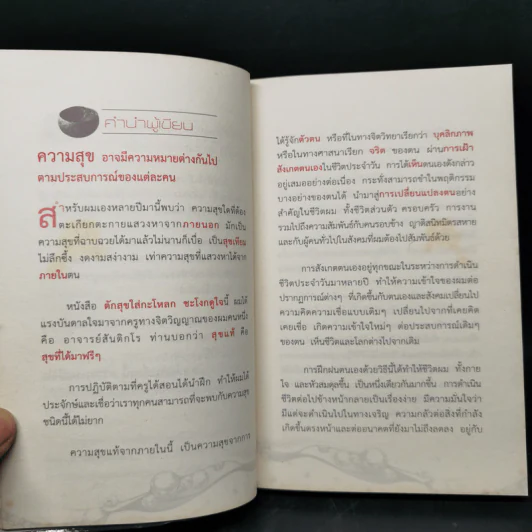 คำนำผู้เขียน
ความสุข อาจมีความหมายต่างกันไป
ตามประสบการณ์ของแต่ละคน
สำหรับผมเองหลายปีมานี้พบว่า ความสุขใดที่ต้อง
ตะเกียกตะกายแสวงหาจากภายนอก มักเป็น
ความสุขที่ฉาบฉวยได้มาแล้วไม่นานก็เบื่อ เป็นสุขเทียม
ไม่ลึกซึ้ง งดงามสง่างาม เท่าความสุขที่แสวงหาได้จาก
ภายในตน
หนังสือ ตักสุขใส่กะโหลก ชะโงกดูใจนี้ ผมได้
แรงบันดาลใจมาจากครูทางจิตวิญญาณของผมคนหนึ่ง
คือ อาจารย์สันติกโร ท่านบอกว่า สุขแท้ คือ
สุขที่ได้มาฟรีๆ
การปฏิบัติตามที่ครูได้สอนได้นำฝึก ทำให้ผมได้
ประจักษ์และเชื่อว่าเราทุกคนสามารถที่จะพบกับความสุข
ชนิดนี้ได้ไม่ยาก
ความสุขแท้จากภายในนี้ เป็นความสุขจากการ
ได้รู้จักตัวตน หรือที่ในทางจิตวิทยาเรียกว่า บุคลิกภาพ
หรือในทางศาสนาเรียก จริต ของตน ผ่านการเฝ้า
สังเกตตนเองในชีวิตประจำวัน การได้เห็นตนเองดังกล่าว
อยู่เสมออย่างต่อเนื่อง กระทั่งสามารถเข้าใจในพฤติกรรม
บางอย่างของตนได้ นำมาสู่การเปลี่ยนแปลงตนอย่าง
สำคัญในชีวิตผม ทั้งชีวิตส่วนตัว ครอบครัว การงาน
รวมไปถึงความสัมพันธ์กับคนรอบข้าง ญาติสนิทมิตรสหาย
และกับผู้คนทั่วไปในสังคมที่ผมต้องไปสัมพันธ์ด้วย
การสังเกตตนเองอยู่ทุกขณะในระหว่างการดำเนิน
ชีวิตประจำวันมาหลายปี ทำให้ความเข้าใจของผมต่อ
ปรากฏการณ์ต่างๆ ที่เกิดขึ้นกับตนเองและสังคมเปลี่ยนไป
ความคิดความเชื่อแบบเดิมๆ เปลี่ยนไปจากที่เคยคิด
เคยเชื่อ เกิดความเข้าใจใหม่ๆ ต่อประสบการณ์เดิมๆ
ของตน เห็นชีวิตและโลกต่างไปจากเดิม
การฝึกฝนตนเองด้วยวิธีนี้ได้ทำให้ชีวิตผม ทั้งกาย
ใจ และหัวสมดุลขึ้น เป็นหนึ่งเดียวกันมากขึ้น การดำเนิน
ชีวิตต่อไปข้างหน้ากลายเป็นเรื่องง่าย มีความมั่นใจว่า
มีแต่จะดำเนินไปในทางเจริญ ความกลัวต่อสิ่งที่กำลัง
เกิดขึ้นตรงหน้าและต่ออนาคตที่ยังมาไม่ถึงลดลง อยู่กับ